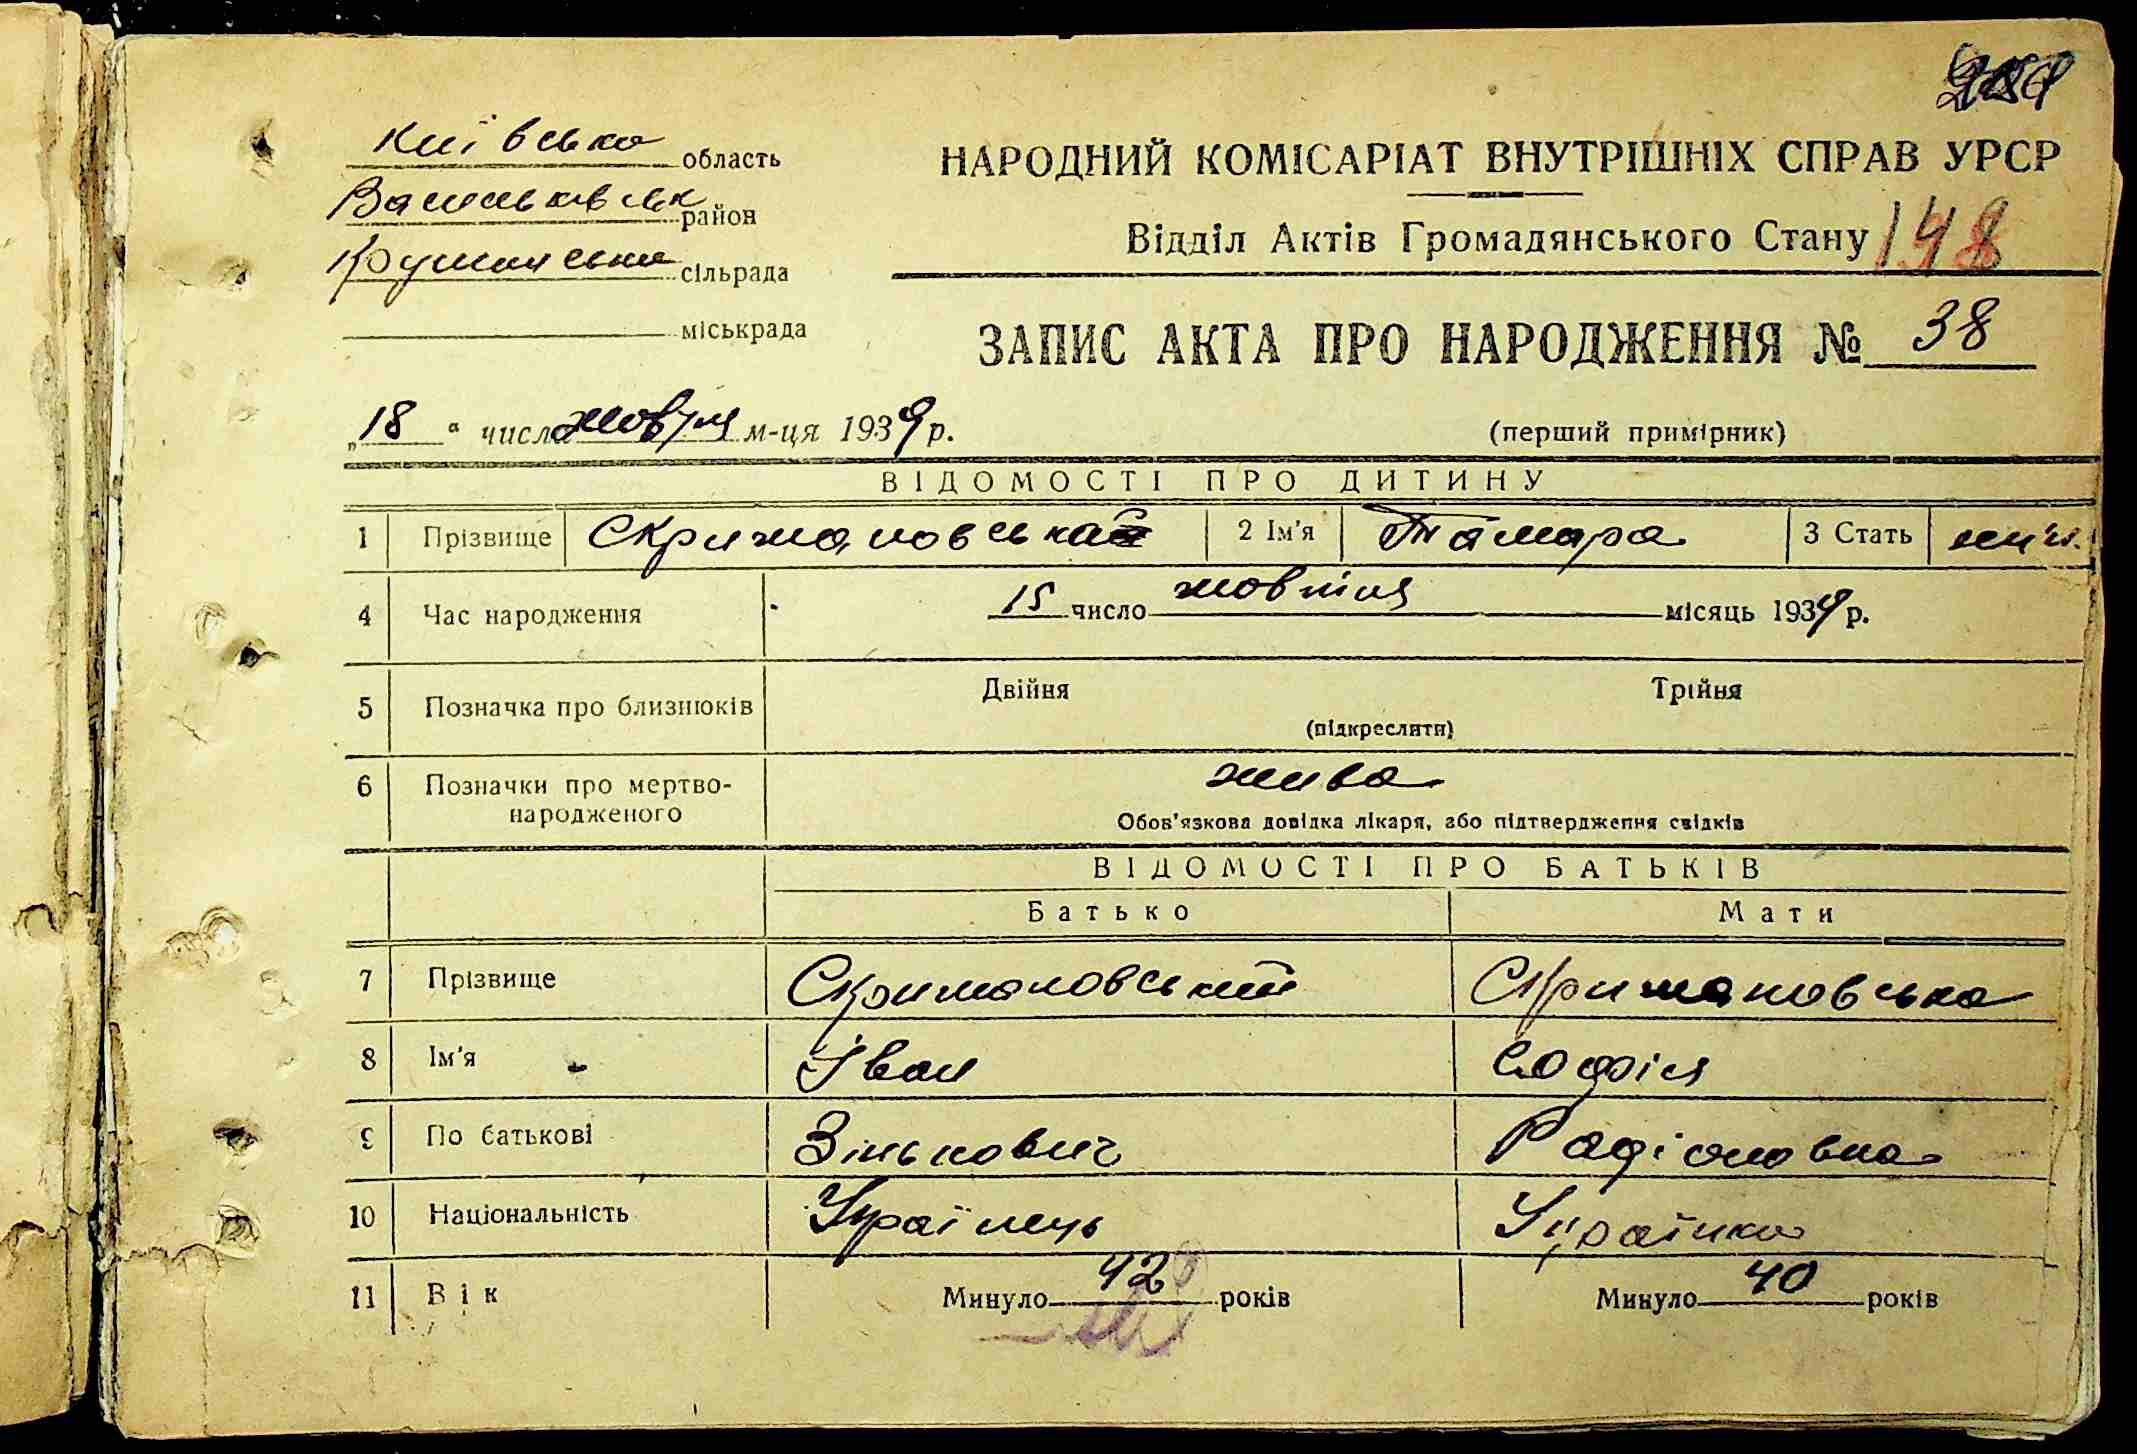 Київська область
НАРОДНИЙ КОМІСАРІАТ ВНУТРІШНІХ СПРАВ УРСР
Васильківськ район
Відділ Актів Громадянського Стану 148
сільрада
міськрада
ЗАПИС АКТА ПРО НАРОДЖЕННЯ № 38
„18“ числа жовтня м-ця 1939 р.
(перший примірник)
ВІДОМОСТІ ПРО ДИТИНУ
1 Прізвище Скримановська 2 Ім'я Тамара 3 Стать
4 Час народження 15 число жовтня місяць 1939 р.
5 Позначка про близнюків Двійня Трійня
(підкреслити)
6 Позначки про мертво- жива
народженого Обов'язкова довідка лікаря, або підтвердження свідків
ВІДОМОСТІ ПРО БАТЬКІВ
Батько Мати
7 Прізвище Скримановський Скримановська
8 Ім'я Іван Софія
9 По батькові Зінькович Радіоновна
10 Національність Українець Українка
11 Вік Минуло 42 років Минуло 40 років